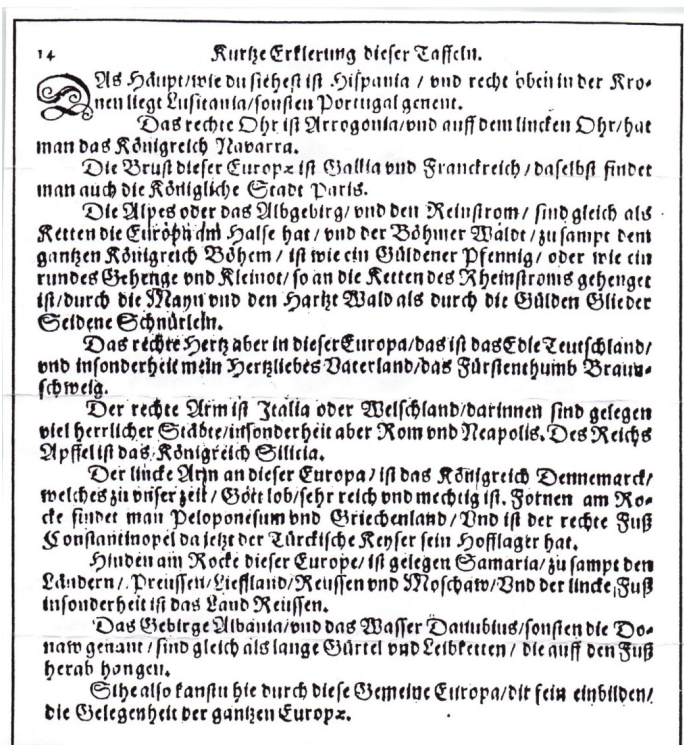 14 Kurtze Erklerung dieser Taffeln.
DAs Häupt/wie du siehest ist Hispania / vnd recht oben in der Kro-
nen liegt Lusitania/sonsten Portugal genent.
Das rechte Ohr ist Arrogonia/vnd auff dem lincken Ohr/hat
man das Königreich Navarra.
Die Brust dieser Europæ ist Gallia vnd Franckreich / daselbst findet
man auch die Königliche Stadt Paris.
Die Alpes oder das Albgebirg/ vnd den Reinstrom / sind gleich als
Ketten die Europa am Halse hat / vnd der Böhmer Waldt / zu sampt dem
gantzen Königreich Böhem / ist wie ein Güldener Pfennig / oder wie ein
rundes Gehenge vnd Kleinot/ so an die Ketten des Rheinstroms gehenget
ist/durch die Mayn vnd den Hartz Wald als durch die Gülden Glieder
Seidene Schnürlein.
Das rechte Hertz aber in dieser Europa/das ist das Edle Teutschland/
vnd insonderheit mein Hertzliebes Vaterland/das Fürstenthumb Braun-
schweig.
Der rechte Arm ist Italia oder Welschland/darinnen sind gelegen
viel herrlicher Städte/insonderheit aber Rom vnd Neapolis. Des Reichs
Apffel ist das Königreich Silicia.
Der lincke Arm an dieser Europa / ist das Königreich Dennemarck/
welches zu vnser zeit / Gott lob/sehr reich vnd mechtig ist. Fornen am Ro-
cke findet man Peloponesum vnd Griechenland / Vnd ist der rechte Fuß
Constantinopel da jetzt der Türckische Keyser sein Hofflager hat.
Hinden am Rocke dieser Europe/ ist gelegen Samaria/ zu sampt den
Ländern / Preussen/Lieffland/Reussen vnd Moschaw/Vnd der lincke Fuß
insonderheit ist das Land Reussen.
Das Gebirge Albania/vnd das Wasser Danubius/sonsten die Do-
naw genant / sind gleich als lange Gürtel vnd Leibketten / die auff den Fuß
herab hongen.
Sihe also kanstu hie durch diese Gemeine Europa/dir fein einbilden/
die Gelegenheit der gantzen Europæ.